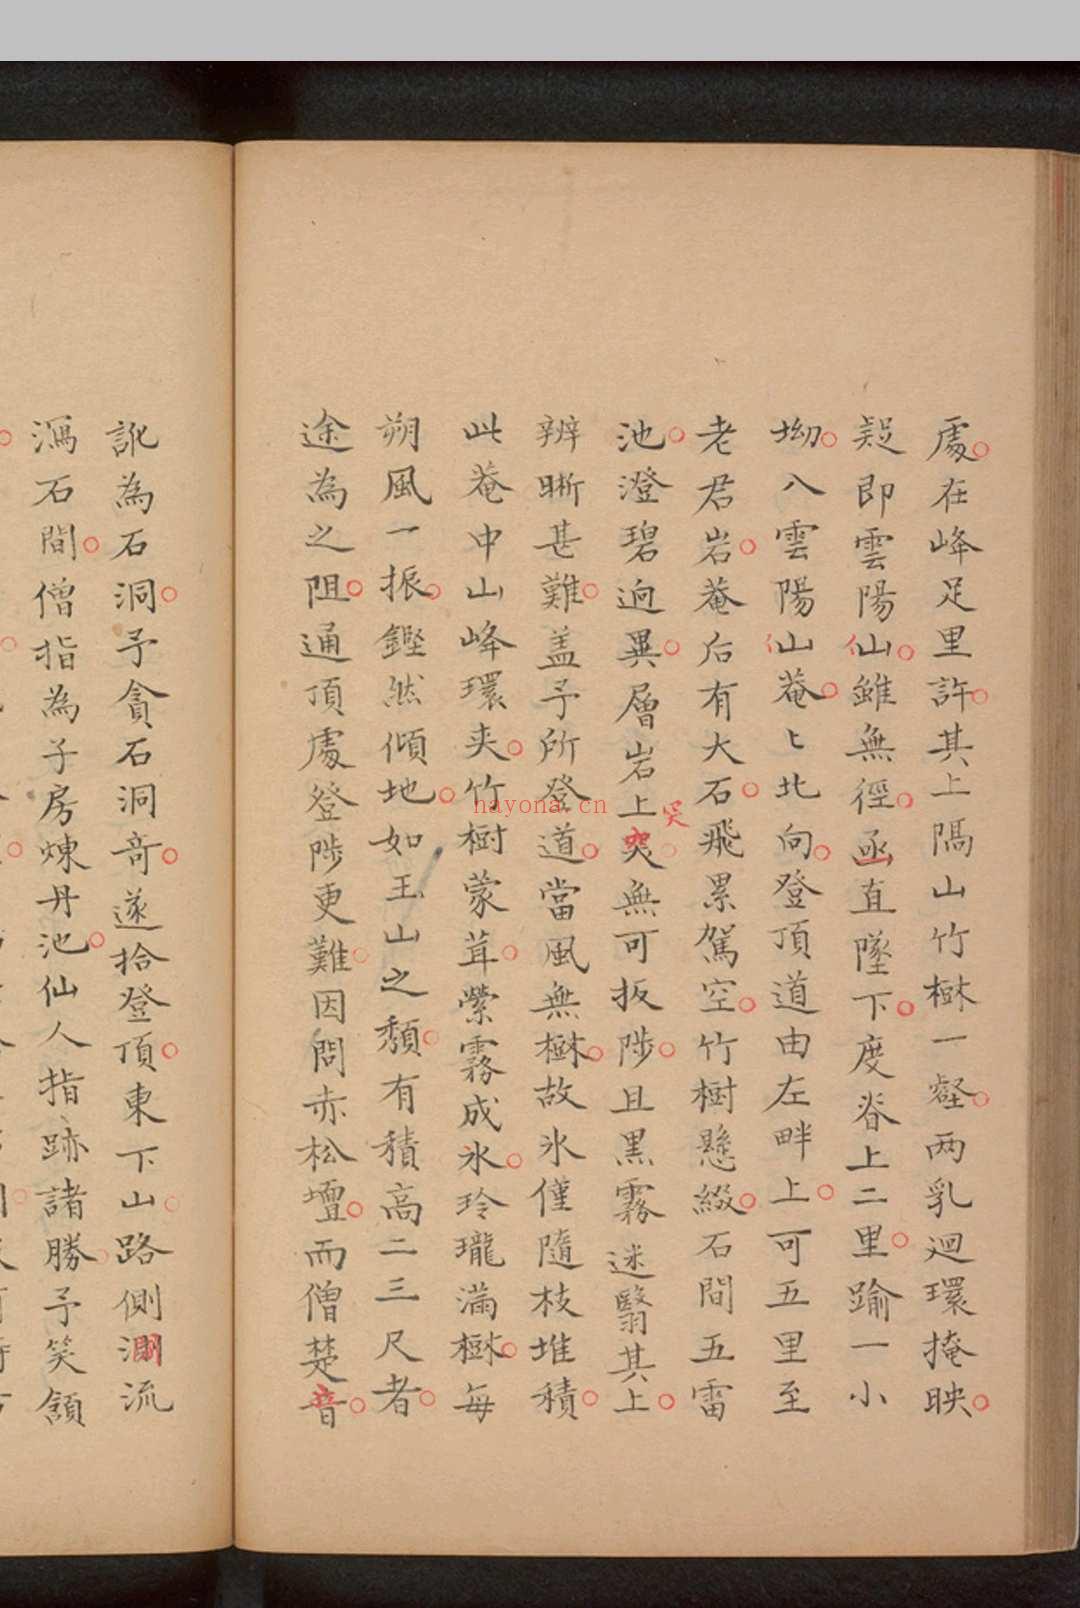 處在峰足里許其上隔山竹樹一壑两乳迴環掩映
疑即雲陽仙雖無徑亟直墜下度脊上二里踰一小
坳八雲陽山菴〻北向登頂道由左畔上可五里至
老君岩菴后有大石飛累駕空竹樹懸綴石間五雷
池澄碧迥異層岩上突無可扳陟且黒霧迷翳其上
辨晰甚難盖予所登道當風無樹故氷僅隨枝堆積
此菴中山峰環夾竹樹蒙茸縈霧成氷玲瓏滿樹每
朔風一振鏗然傾地如玉山之頹有積高二三尺者
途為之阻通頂處登陟更難因問赤松壇而僧楚音
訛為石洞予貪石洞竒遂拾登頂東下山路側澗流
瀉石間僧指為子房煉丹池仙人指跡諸勝予笑頷
nayona.cn